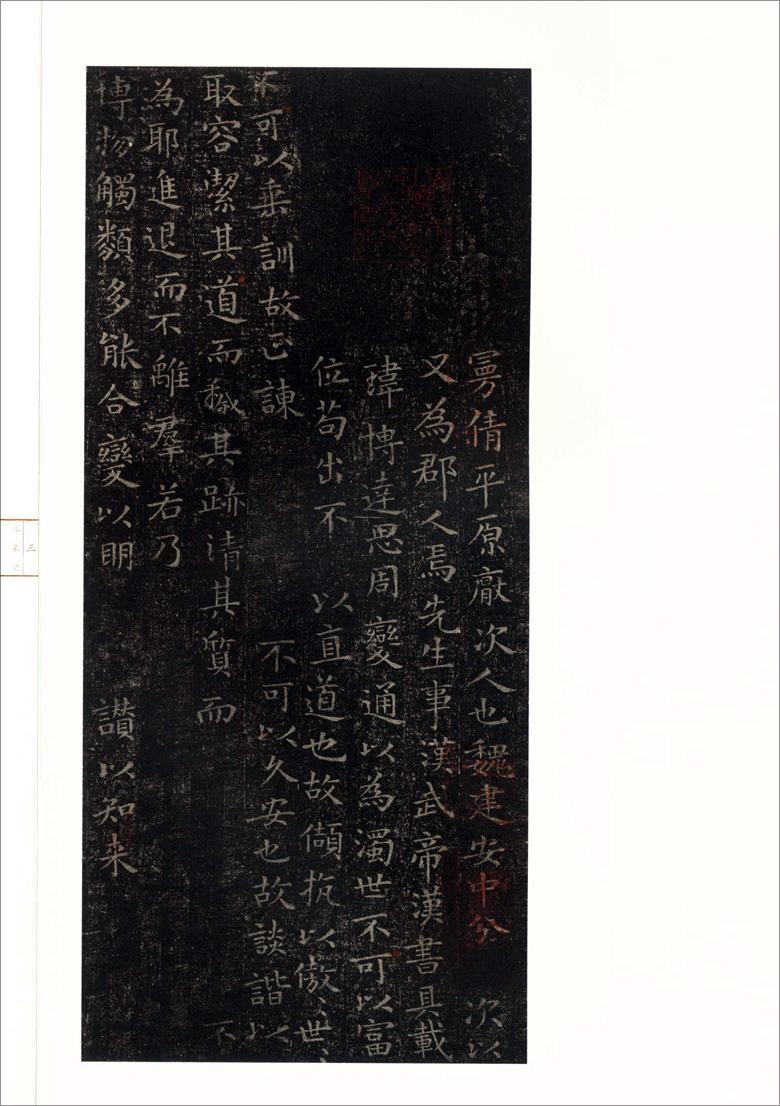 曼倩平原厭次人也魏建安中分 次以
又為郡人焉先生事漢武帝漢書具載
瑋博達思周變通以為濁世不可以富
位苟出不 以直道也故頡抗以傲〻世〻
不可以垂訓故正諫 不可以久安也故談諧以
取容潔其道而穢其跡清其質而 不
為耶進退而不離羣若乃
博物觸類多能合變以明 讃以知来
三